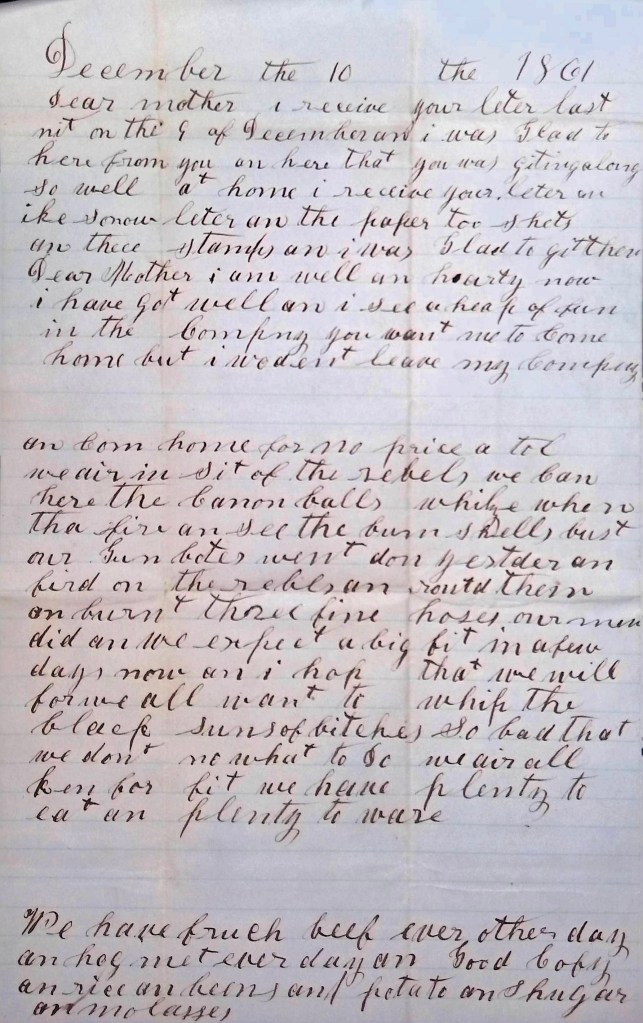 December the 10 the 1861
Dear mother i receive your leter last
nit on the 9 of December an i was Glad to
here from you an here that you was giting along
so well at home i receive your leter an
ike sonow leter an the paper too shets
an thee stamps an i was Glad to git them
Dear Mother i am well an hearty now
i have got well an i see a heap of fun
in the Compny you want me to Come
home but i wodent leave my Compeny
an Com home for no price a tol
we air in Sit of the rebels we Can
here the Canon balls whike when
tha fire an see the bum shells bust
our Gun botes went don yestder an
fird on the rebls an routd them
an burnt three fine hoses our men
did an we expect a big fit in a few
days now an i hop that we will
for we all want to whip the
black suns of bitches So bad that
we dont no what to do we air all
ken for fit we have plenty to
eat an plenty to ware
We have fruch beef ever other day
an hog met ever day an Good Cofy
an rice an beens an potato an Shugar
an molasses